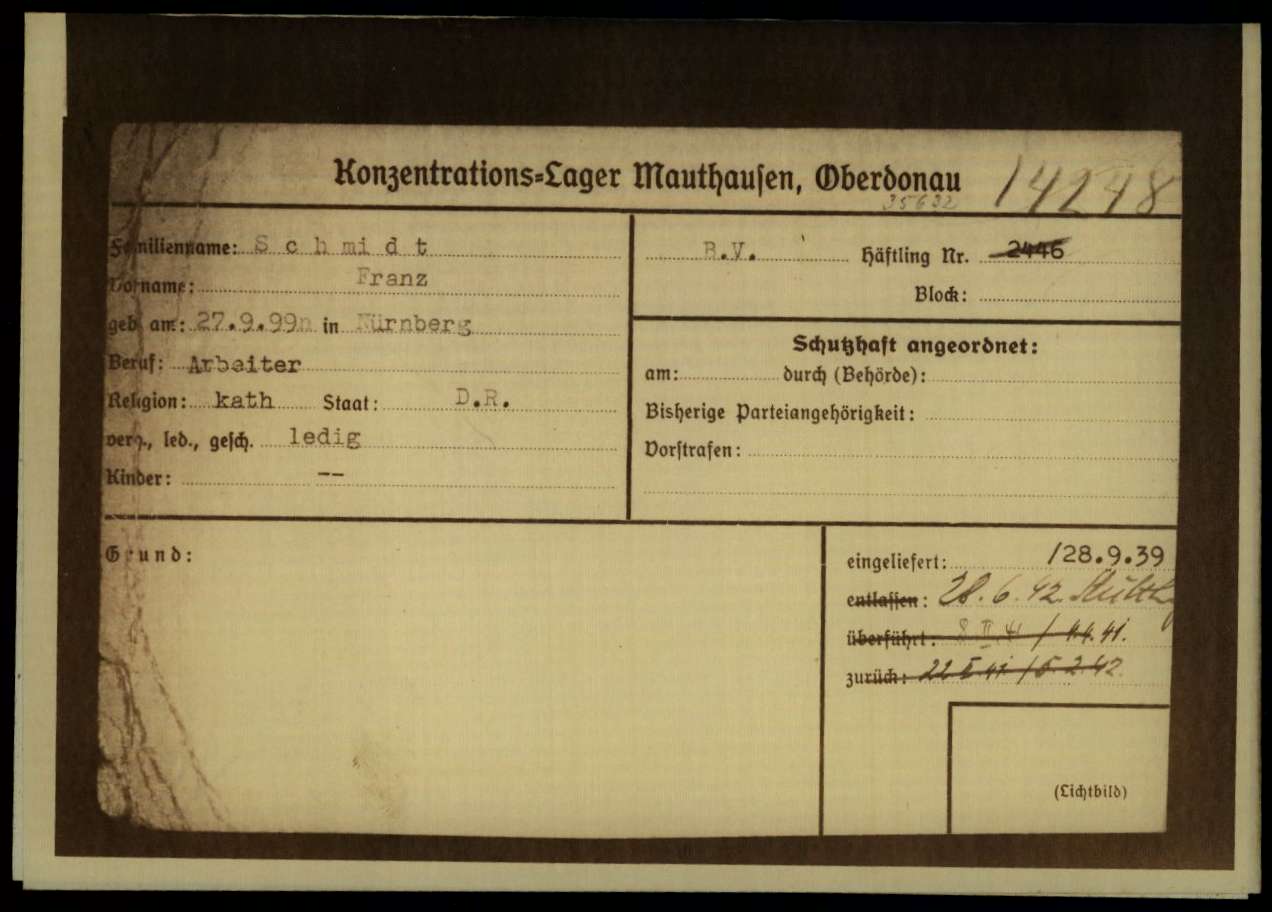 Konzentrations=Lager Mauthausen, Oberdonau 14248
35632
Familienname: Schmidt
Vorname: Franz
geb. am: 27.9.99 in Nürnberg
Beruf: Arbeiter
Religion: kath Staat: D.R.
verh., led., gesch. ledig
Kinder: --
B.V. Häftling Nr. 2446
Block:
Schutzhaft angeordnet:
am: durch (Behörde):
Bisherige Parteiangehörigkeit:
Vorstrafen:
Grund:
eingeliefert: /28.9.39
entlassen: 28.6.42.
überführt: 8.II.41 / 4.41.
zurück: 22.5.41 / 5.2.42.
(Lichtbild)